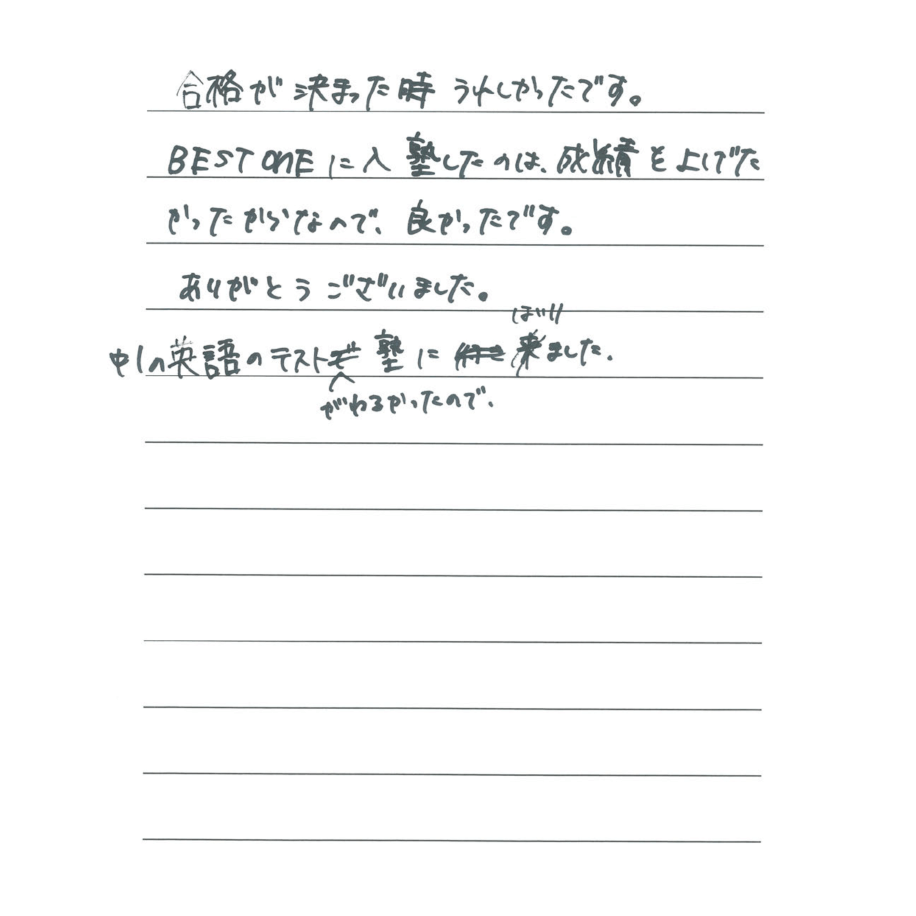 合格が決まった時うれしかったです。
BEST ONEに入塾したのは、成績を上げた
かったからなので、良かったです。
ありがとうございました。
中1の英語のテスト 塾に 来ました。
がわるかったので、